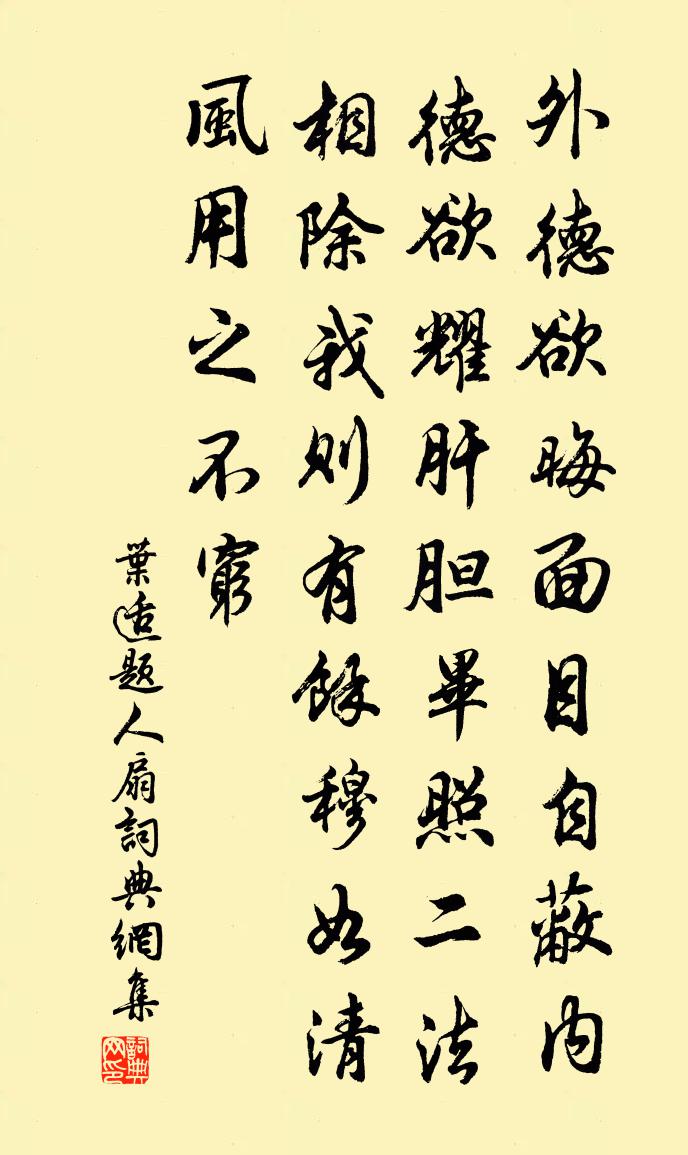 外德欲晦面目自蔽内
德欲耀肝胆畢照二法
相除我則有餘穆如清
風用之不窮
葉适題人扇詞典網集
詞典网印